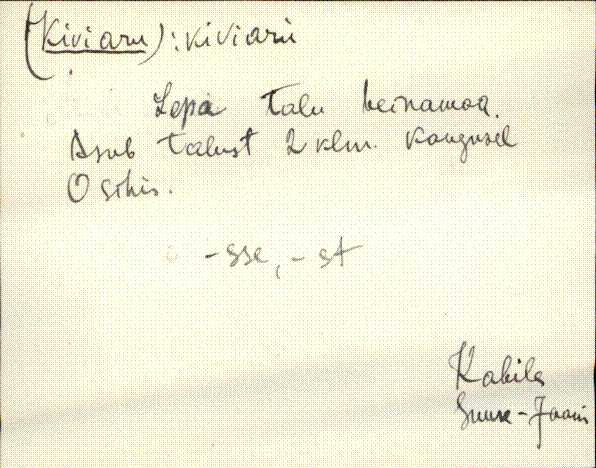 (Kiviaru): kiviarii
Lepa talu heinamaa.
Asub talust 2 klm. kaugusel
O sihis.
-sse, -st
Kabila
Suure-Jaani